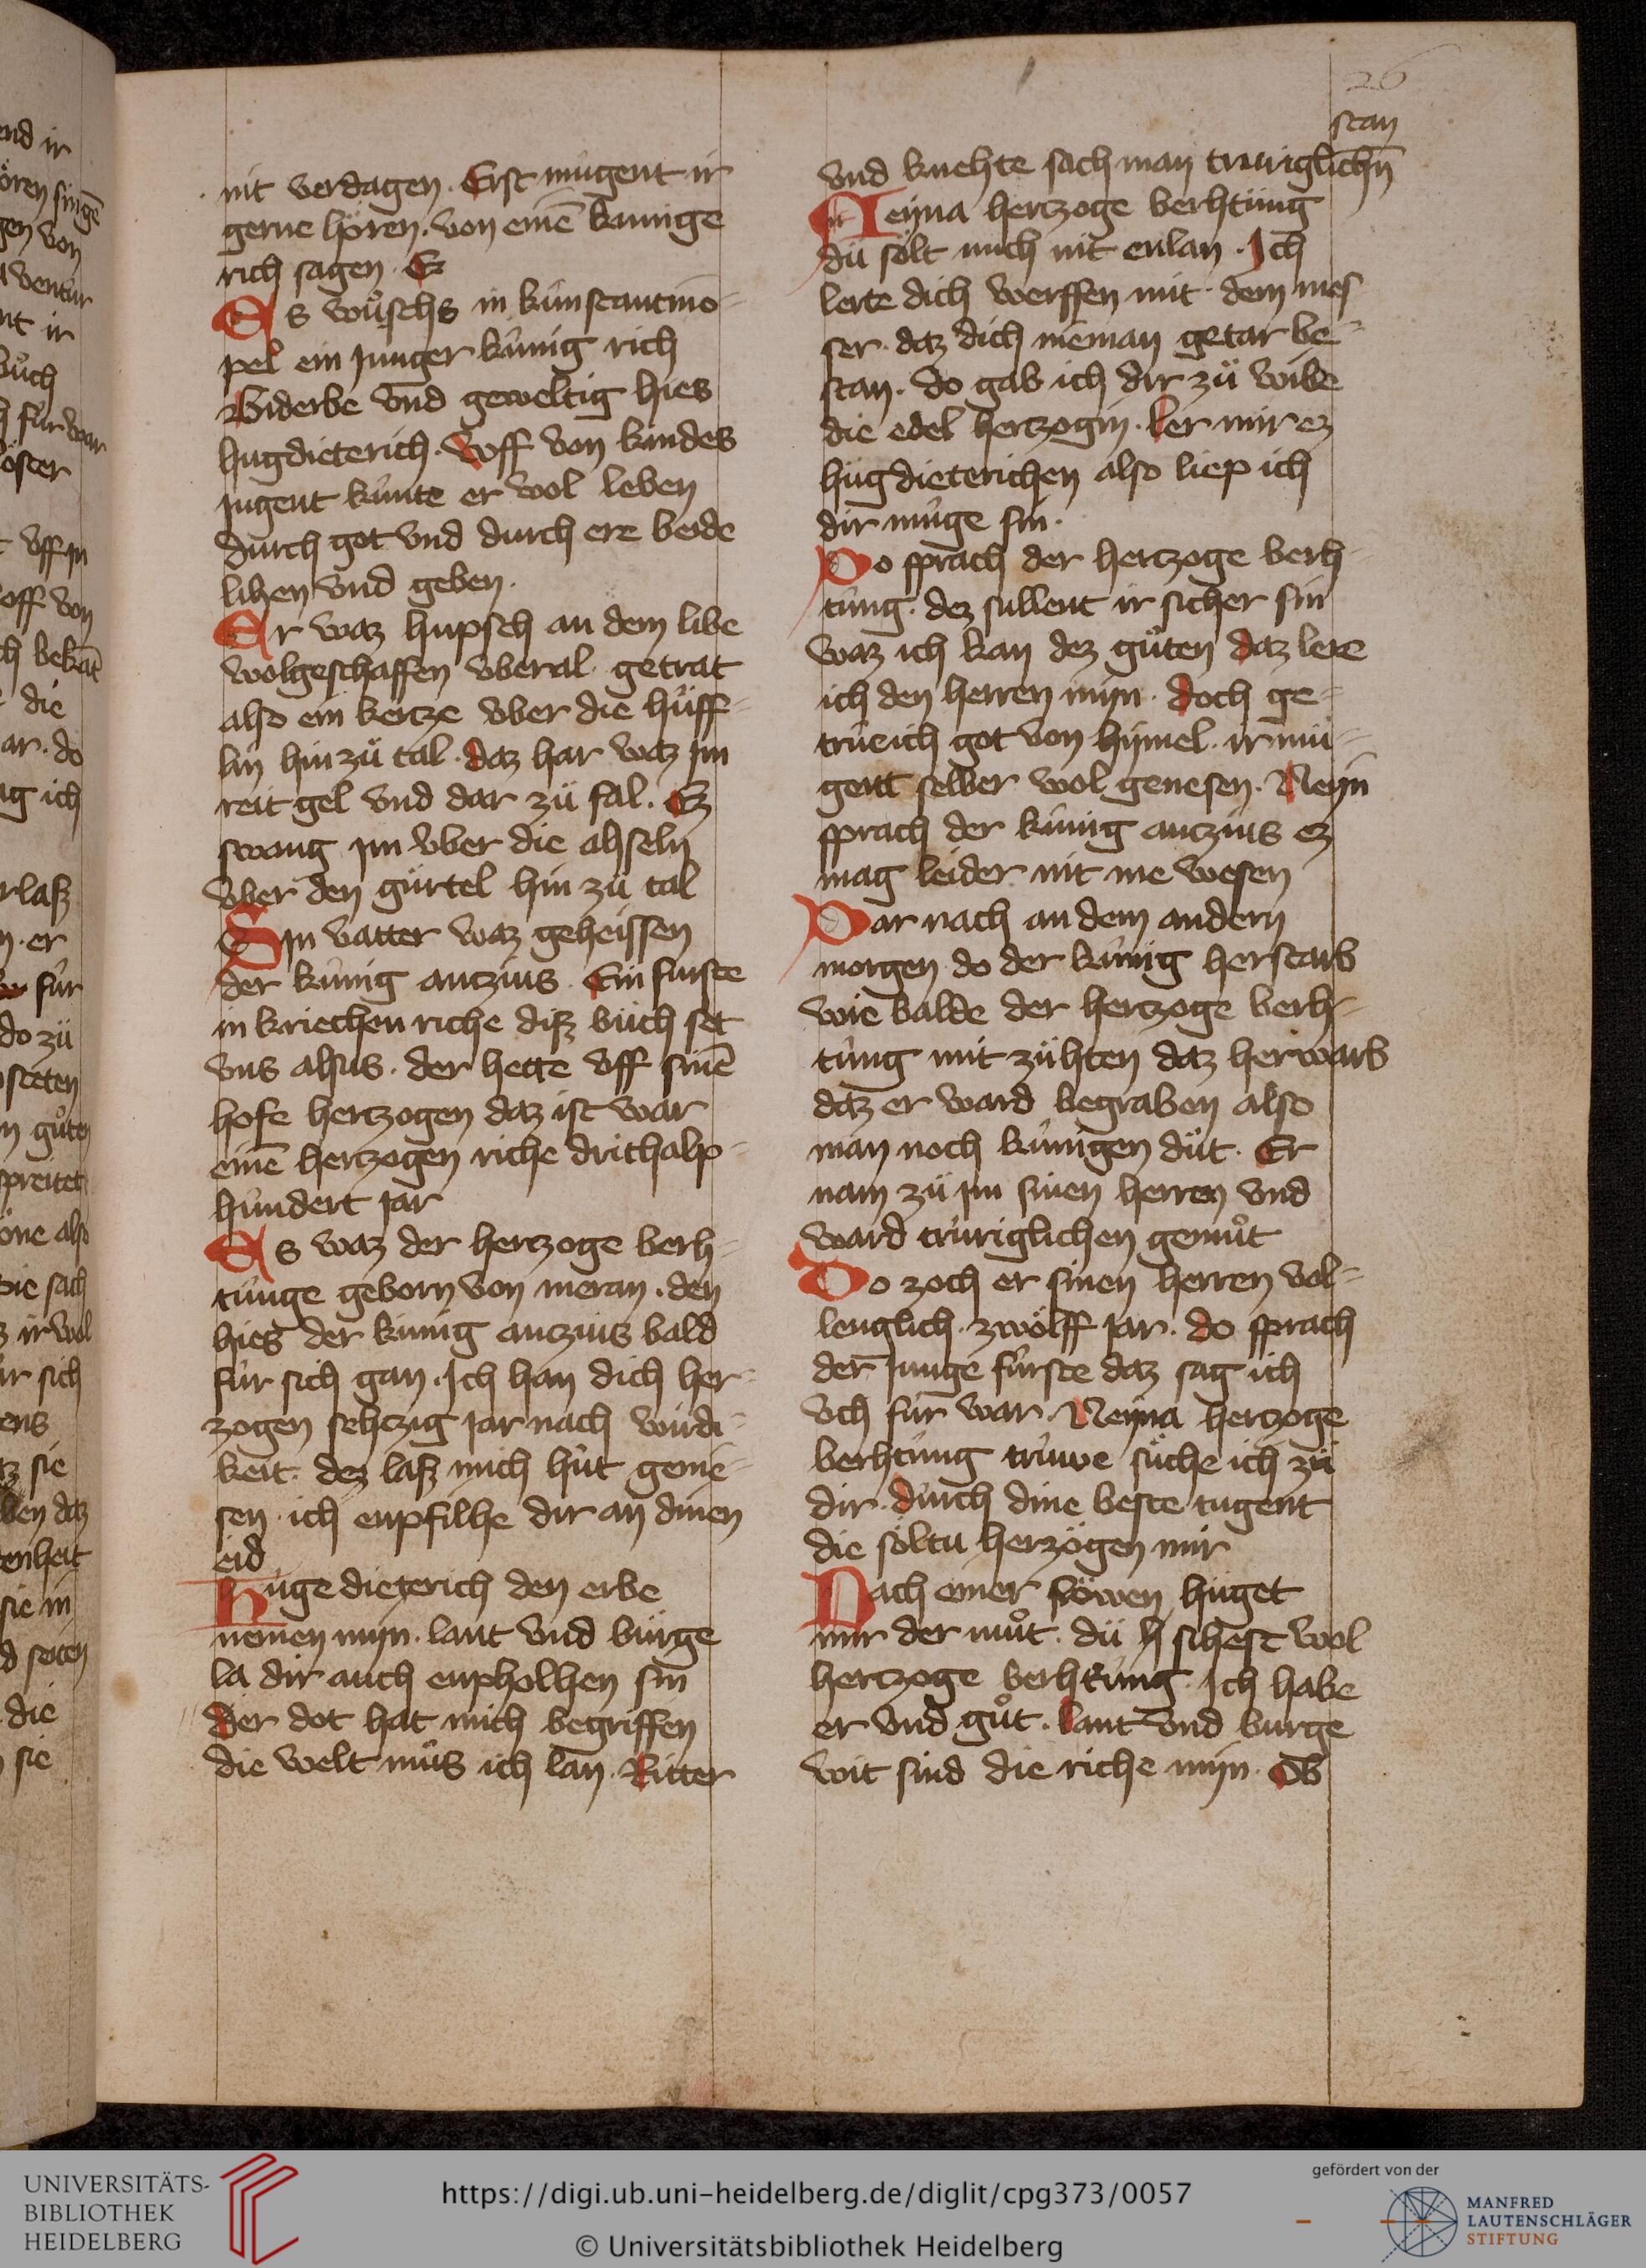 nit verdagen. Erst mügent ir
gerne hören. von einē künige
rich sagen. Ez
Es wůchs in kunstantino-
pel ein junger künig rich
Biderbe vnd geweltig hies
hugdieterich. vff von kindes
jugent kunte er wol leben
durch got vnd durch ere beide
lihen vnd geben.
Er waz hupsch an dem libe
wolgeschaffen vberal. getrat
also ein kertze vber die hüff-
lin hin zü tal. daz har waz im
reit gel vnd dar zü fal. Ez
swang im vber die ahseln
vber den gürtel hin zü tal
Sin vatter waz geheissen
der künig antzius. Ein furste
in kriechen riche disz büch set
vns alsus. der hette vff sinē
hofe hertzogen daz ist war
einē hertzogen riche drithalp-
hundert jar
Es waz der hertzoge berh-
tunge geborn von meran. den
hies der künig antzius bald
für sich gan. Ich han dich her-
zogen sehtzig jar nach wirdi-
keit. dez lasz mich hüt genie-
sen. ich enpfilhe dir an dinen
eid
Huge dieterich den erbe
nemen myn. lant vnd bürge
la dir auch enpholhen sin
der dot hat mich begriffen
die welt müs ich lan. Ritter
26
stan
vnd knehte sach man truriglichn̄
Neyna hertzoge berhtüng
dü solt mich nit enlan. Ich
lerte dich werffen mit dem mes
ser. daz dich nieman getar be-
stan. do gab ich dir zü wibe
die edel hertzogin. ler mir ez
hügdieterichen also liep ich
dir müge sin.
Do sprach der hertzoge berh-
tüng. dez sullent ir sicher sin
waz ich kan dez güten daz lere
ich den herren myn. doch ge-
trüeich got von hymel. ir mü-
gent selber wol genesen. Neyn
sprach der künig antzius ez
mag leider nit me wesen
Dar nach an dem andern
morgen do der künig herstarb
wie balde der hertzoge berh-
tüng mit zühten daz herwarb
daz er ward begraben also
man noch künigen düt. Er
nam zü im sinen herren vnd
ward trüriglichen gemůt
Do zoch er sinen herren vol-
lenglich. zwölff jar. do sprach
der junge fürste daz sag ich
vch für war. Neyna hertzoge
berhtüng trüwe süche ich zü
dir. durch dine beste tugent
die soltu herzögen mir
Nach einer fröwen hüget
mir der můt. dü h sihest wol
hertzoge berhtüng. Ich habe
er vnd gůt. lant vnd burge
wit sind die riche myn. Ob
end ir
ören singē
gen von
nt ir
ůch
h für war
öster
vff in
off von
ch bekāt
die
ar. do
ag ich
rlasz
n. er
für
do zü
steten
n gůten
spreitet
öne also
die sach
z ir wol
ür sich
ens
tz sie
ben daz
enheit
sie in
d seiten
die
sie
UNIVERSITÄTS-
BIBLIOTHEK
HEIDELBERG
https://digi.ub.uni-heidelberg.de/diglit/cpg373/0057
© Universitätsbibliothek Heidelberg
gefördert von der
MANFRED
LAUTENSCHLÄGER
STIFTUNG